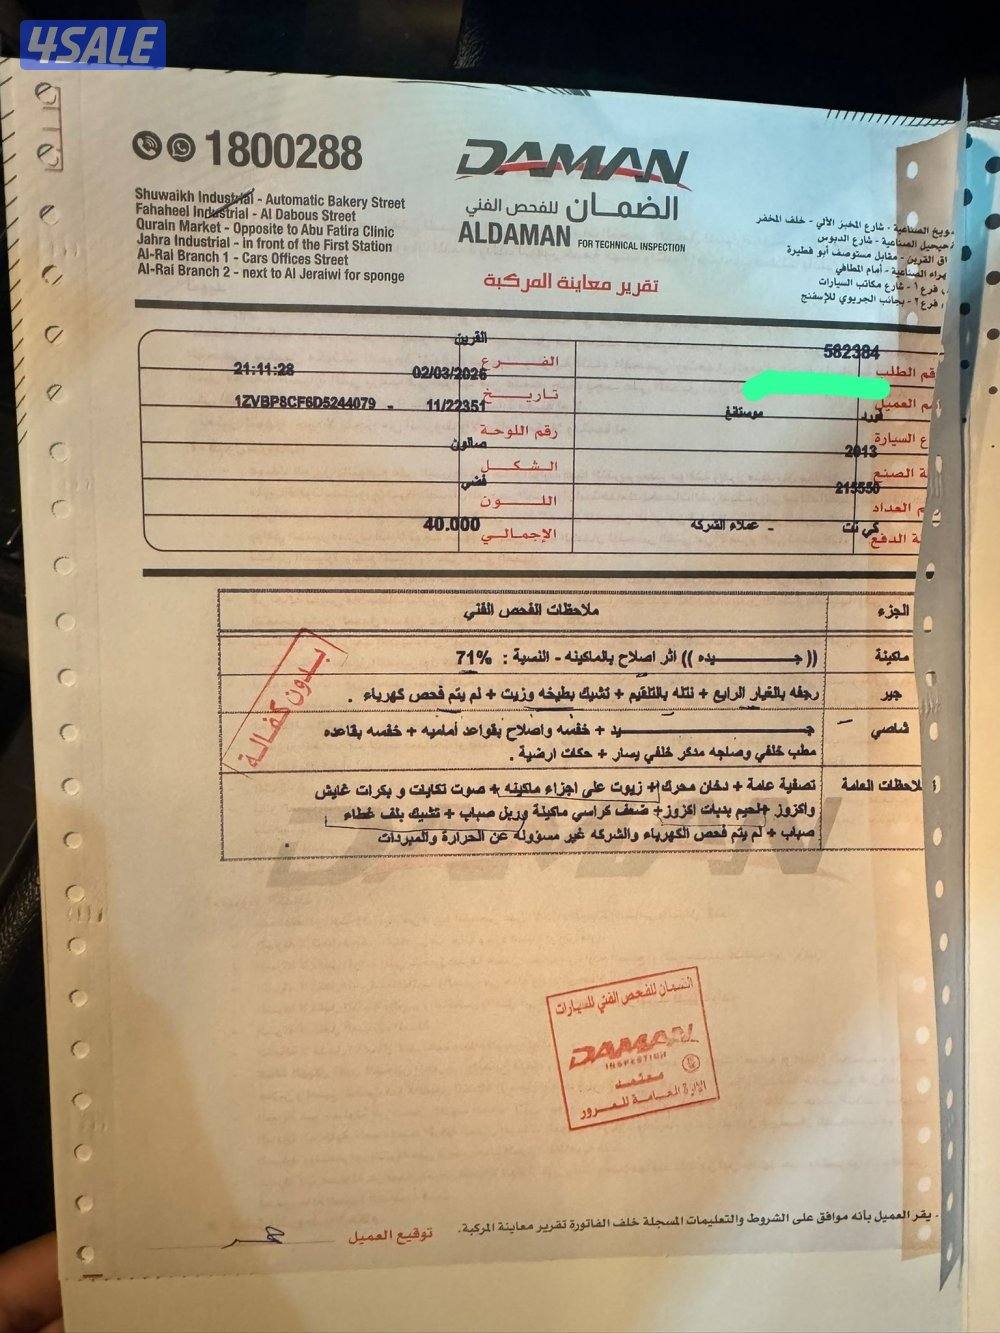 4SALE
1800288
Shuwaikh Industrial - Automatic Bakery Street
Fahaheel Industrial - Al Dabous Street
Qurain Market - Opposite to Abu Fatira Clinic
Jahra Industrial - in front of the First Station
Al-Rai Branch 1 - Cars Offices Street
Al-Rai Branch 2 - next to Al Jeraiwi for sponge
DAMAN
الضمان للفحص الفني
ALDAMAN FOR TECHNICAL INSPECTION
تقرير معاينة المركبة
الصناعية - شارع المخبز الآلي - خلف المخفر
الصناعية - شارع الدبوس
القرين - مقابل مستوصف أبو فطيرة
الصناعية - أمام المطافي
فرع ١ - شارع مكاتب السيارات
فرع ٢ - بجانب الجريوي للإسفنج
582384
الطلب
القرين
الفرع
العميل
02/03/2026 21:11:28
تاريخ
فورد موستنغ
السيارة
11/22351 - 1ZVBP8CF6D5244079
رقم اللوحة
2013
الصنع
صالون
الشكل
215550
العداد
فضي
اللون
كي نت - عملاء الشركة
الدفع
40.000
الإجمالي
الجزء ملاحظات الفحص الفني
ماكينة (( جـــيده )) اثر اصلاح بالماكينه - النسبة : 71%
جير رجفه بالغيار الرابع + نتله بالتلقيم + تشيك بطيخه وزيت + لم يتم فحص كهرباء .
شاصي جـــيد + خفسه واصلاح بقواعد أماميه + خفسه بقاعده
مطب خلفي وصلجه مدكر خلفي يسار + حكات ارضية .
ملاحظات العامة تصفية عامة + دخان محرك + زيوت على اجزاء ماكينه + صوت تكايات و بكرات غايش
واكزوز + لحيم بدبات اكزوز + ضعف كراسي ماكينة وربل صباب + تشيك بلف غطاء
صباب + لم يتم فحص الكهرباء والشركه غير مسؤوله عن الحرارة والمبردات
بدون كفالة
الضمان للفحص الفني للسيارات
DAMAN
INSPECTION
معتمد
الإدارة العامة للمرور
- يقر العميل بأنه موافق على الشروط والتعليمات المسجلة خلف الفاتورة تقرير معاينة المركبة.
توقيع العميل